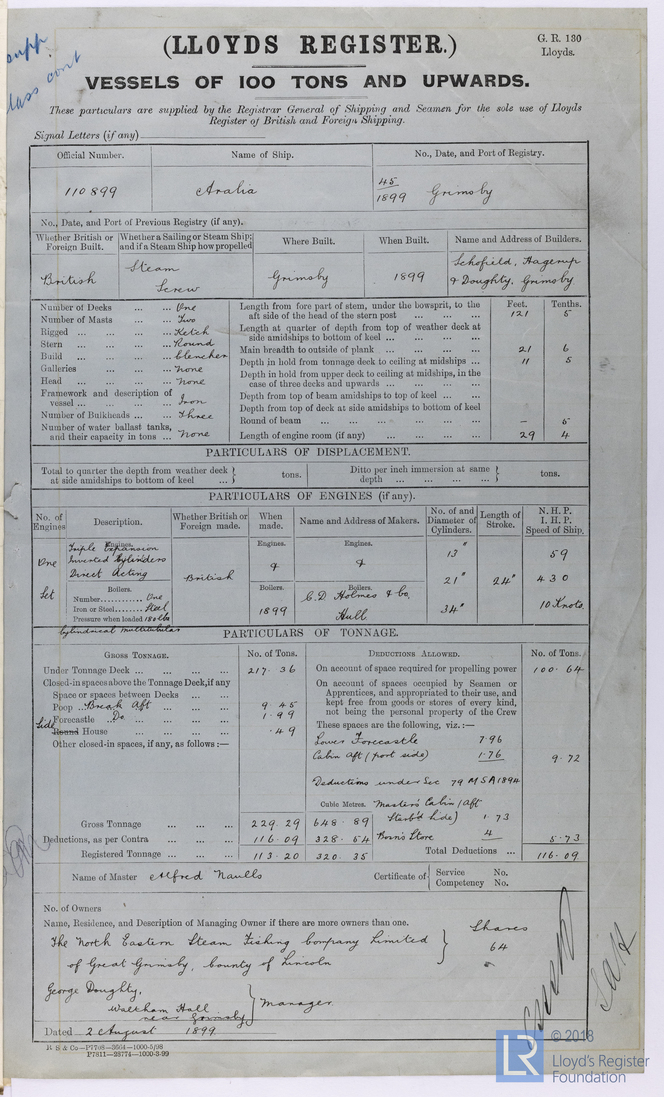 supp.
class cont
(LLOYDS REGISTER.)
G. R. 130
Lloyds.
VESSELS OF 100 TONS AND UPWARDS.
These particulars are supplied by the Registrar General of Shipping and Seamen for the sole use of Lloyds
Register of British and Foreign Shipping.
Signal Letters (if any)
Official Number. Name of Ship. No., Date, and Port of Registry.
110899 Aralia 45/1899 Grimsby
No., Date, and Port of Previous Registry (if any).
Whether British or Foreign Built. Whether a Sailing or Steam Ship; and if a Steam Ship how propelled Where Built. When Built. Name and Address of Builders.
British Steam Screw Grimsby 1899 Schofield, Hagerup & Doughty, Grimsby
Number of Decks ... ... One
Number of Masts ... ... Two
Rigged ... ... ... ... Ketch
Stern ... ... ... ... Round
Build ... ... ... ... Clencher
Galleries ... ... ... None
Head ... ... ... ... None
Framework and description of
vessel ... ... ... ... Iron
Number of Bulkheads ... ... Three
Number of water ballast tanks,
and their capacity in tons ... None
Feet. Tenths.
Length from fore part of stem, under the bowsprit, to the
aft side of the head of the stern post ... ... ... 121 5
Length at quarter of depth from top of weather deck at
side amidships to bottom of keel ... ... ... ...
Main breadth to outside of plank ... ... ... ... 21 6
Depth in hold from tonnage deck to ceiling at midships ... 11 5
Depth in hold from upper deck to ceiling at midships, in the
case of three decks and upwards ... ... ... ...
Depth from top of beam amidships to top of keel ... ...
Depth from top of deck at side amidships to bottom of keel
Round of beam ... ... ... ... ... ... – 5
Length of engine room (if any) ... ... ... ... 29 4
PARTICULARS OF DISPLACEMENT.
Total to quarter the depth from weather deck at side amidships to bottom of keel ... } tons. Ditto per inch immersion at same depth ... ... ... ... } tons.
PARTICULARS OF ENGINES (if any).
No. of Engines Description. Whether British or Foreign made. When made. Name and Address of Makers. No. of and Diameter of Cylinders. Length of Stroke. N. H. P. I. H. P. Speed of Ship.
One Set
Engines.
Triple Expansion
Inverted Cylinders
Direct Acting
Boilers.
Number............ One
Iron or Steel....... Steel
Pressure when loaded 180 lbs
Cylindrical multitubular
British
Engines.
&
Boilers.
1899
Engines.
&
Boilers.
C.D Holmes & Co.
Hull
13"
21"
34"
24"
59
430
10 Knots.
PARTICULARS OF TONNAGE.
GROSS TONNAGE. No. of Tons. DEDUCTIONS ALLOWED. No. of Tons.
Under Tonnage Deck ... ... ... ... 217.36
Closed-in spaces above the Tonnage Deck, if any
Space or spaces between Decks ... ...
Poop .. Break Aft ... ... ... 9.45
Forecastle .. Do. ... ... ... 1.99
Side Round House ... ... ... ... .49
Other closed-in spaces, if any, as follows :—
On account of space required for propelling power 100.64
On account of spaces occupied by Seamen or
Apprentices, and appropriated to their use, and
kept free from goods or stores of every kind,
not being the personal property of the Crew
These spaces are the following, viz. :—
Lower Forecastle 7.96
Cabin aft (port side) 1.76 9.72
Deductions under Sec 79 MSA 1894
Cubic Metres. Master's Cabin (Aft
Starb'd side) 1.73
Gross Tonnage ... ... ... 229.29 648.89
Deductions, as per Contra ... ... 116.09 328.54 Bosns Store 4 5.73
Registered Tonnage ... ... 113.20 320.35 Total Deductions ... 116.09
Name of Master Alfred Naulls Certificate of { Service No. Competency No.
No. of Owners
Name, Residence, and Description of Managing Owner if there are more owners than one. Shares
The North Eastern Steam Fishing Company Limited } 64
of Great Grimsby, County of Lincoln
George Doughty,
Waltham Hall } Manager
near Grimsby
Dated 2 August 1899
R S & Co—P7768—3664—1000-5/98
P7811—28774—1000-3-99
LR
© 2018
Lloyd's Register
Foundation